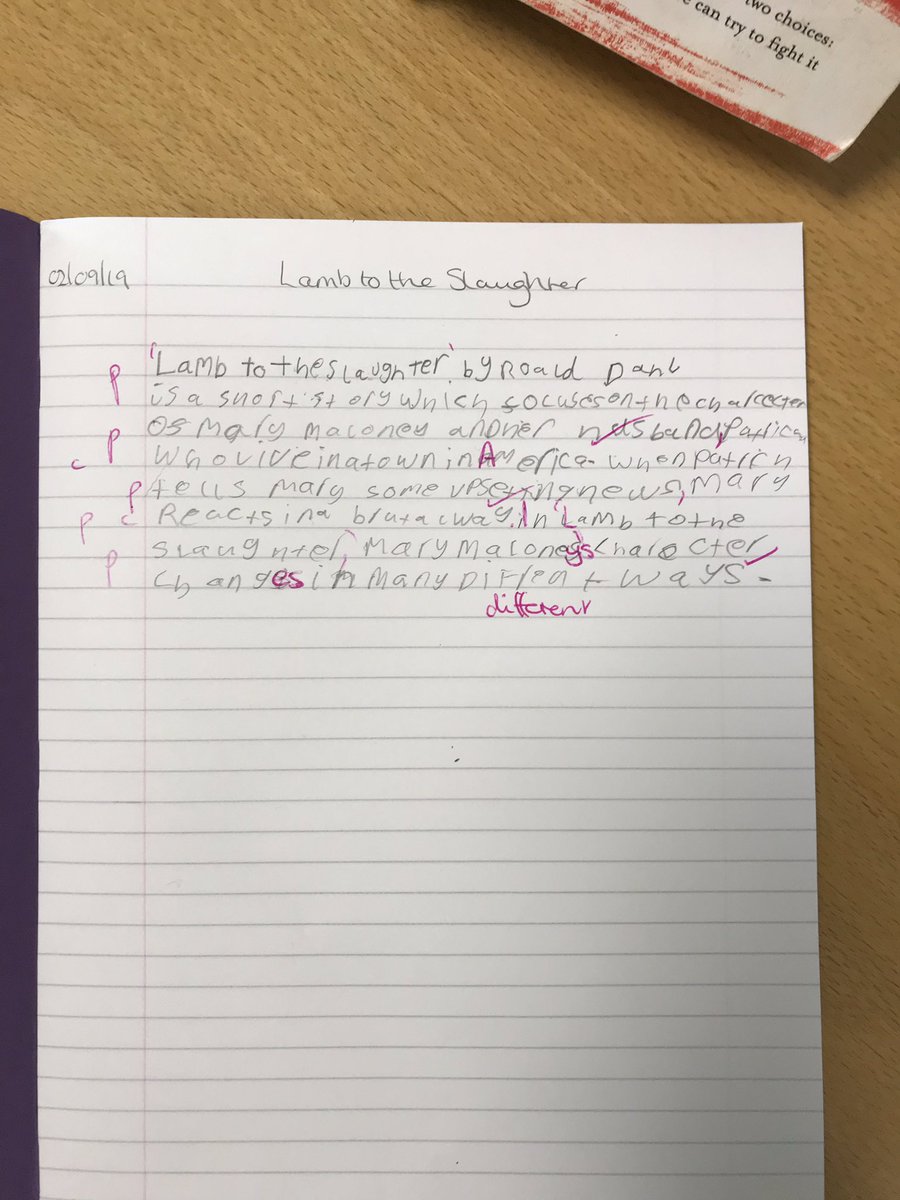 two choices:
can try to fight it
02/09/19
Lamb to the Slaughter
P
'Lamb to the slaughter' by Roald Dahl
is a short story which focuses on the charecter
P
of Mary Maloney and her husband, Patrick
c
who live in a town in America. when patrick
P
tells Mary some upsetting news, Mary
P c
Reacts in a brutal way. In 'Lamb to the
slaughter', Mary Maloneys character
P
changes in many Diffrent ways.
different